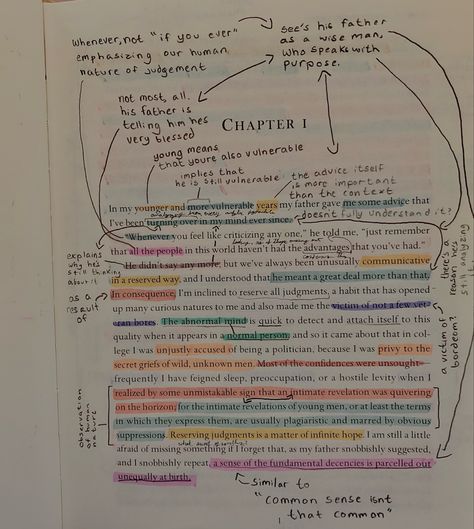 Whenever, not "if you ever"
emphasizing our human
nature of judgement
see's his father
as a wise man,
who speaks with
purpose.
not most, all.
his father is
telling him hes
very blessed
CHAPTER I
young means
that youre also vulnerable
implies that
he is still vulnerable
the advice itself
is more important
than the context
In my younger and more vulnerable years my father gave me some advice that
I've been turning over in my mind ever since.
doesn't fully understand it?
"Whenever you feel like criticizing any one," he told me, "just remember
that all the people in this world haven't had the advantages that you've had."
He didn't say any more, but we've always been unusually communicative
in a reserved way, and I understood that he meant a great deal more than that.
In consequence, I'm inclined to reserve all judgments, a habit that has opened
up many curious natures to me and also made me the victim of not a few vet-
eran bores. The abnormal mind is quick to detect and attach itself to this
quality when it appears in a normal person, and so it came about that in col-
lege I was unjustly accused of being a politician, because I was privy to the
secret griefs of wild, unknown men. Most of the confidences were unsought—
frequently I have feigned sleep, preoccupation, or a hostile levity when I
realized by some unmistakable sign that an intimate revelation was quivering
on the horizon; for the intimate revelations of young men, or at least the terms
in which they express them, are usually plagiaristic and marred by obvious
suppressions. Reserving judgments is a matter of infinite hope. I am still a little
afraid of missing something if I forget that, as my father snobbishly suggested,
and I snobbishly repeat, a sense of the fundamental decencies is parcelled out
unequally at birth.
explains
why he's
still thinking
about it
as a
result of
observation
of human
nature
there's a
reason he's
still analyzing
it
a victim of
bordeom?
similar to
"common sense isnt
that common"